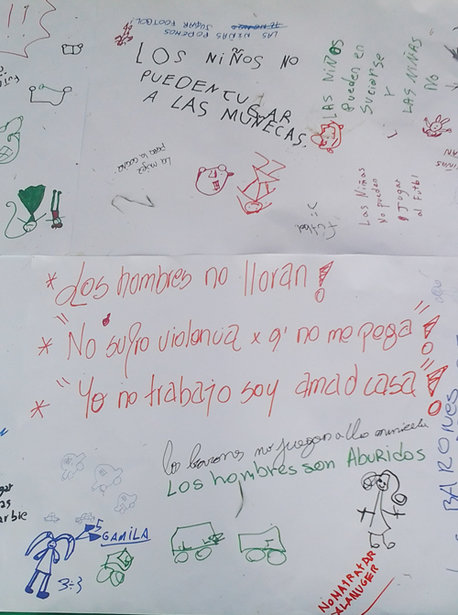 LAS NIÑAS PODEMOS
JUGAR FOOTBOL
LOS NIÑOS NO
PUEDEN CUGAR
A LAS MUÑECAS.
LAS NIÑOS
Pueden en
Suciarse
Y
LAS NIÑAS
NO
La mujer
para la cocina
Las Niñas
No pueden
Jugar
al Futbl
* Los hombres no lloran!
* "No sufro violencia x q' no me pega"!
* "Yo no trabajo soy ama d casa"!
los barones no juegan a las
Los hombres son Aburidos
GAMILA
3:3
NO MATRATAR
BARONES